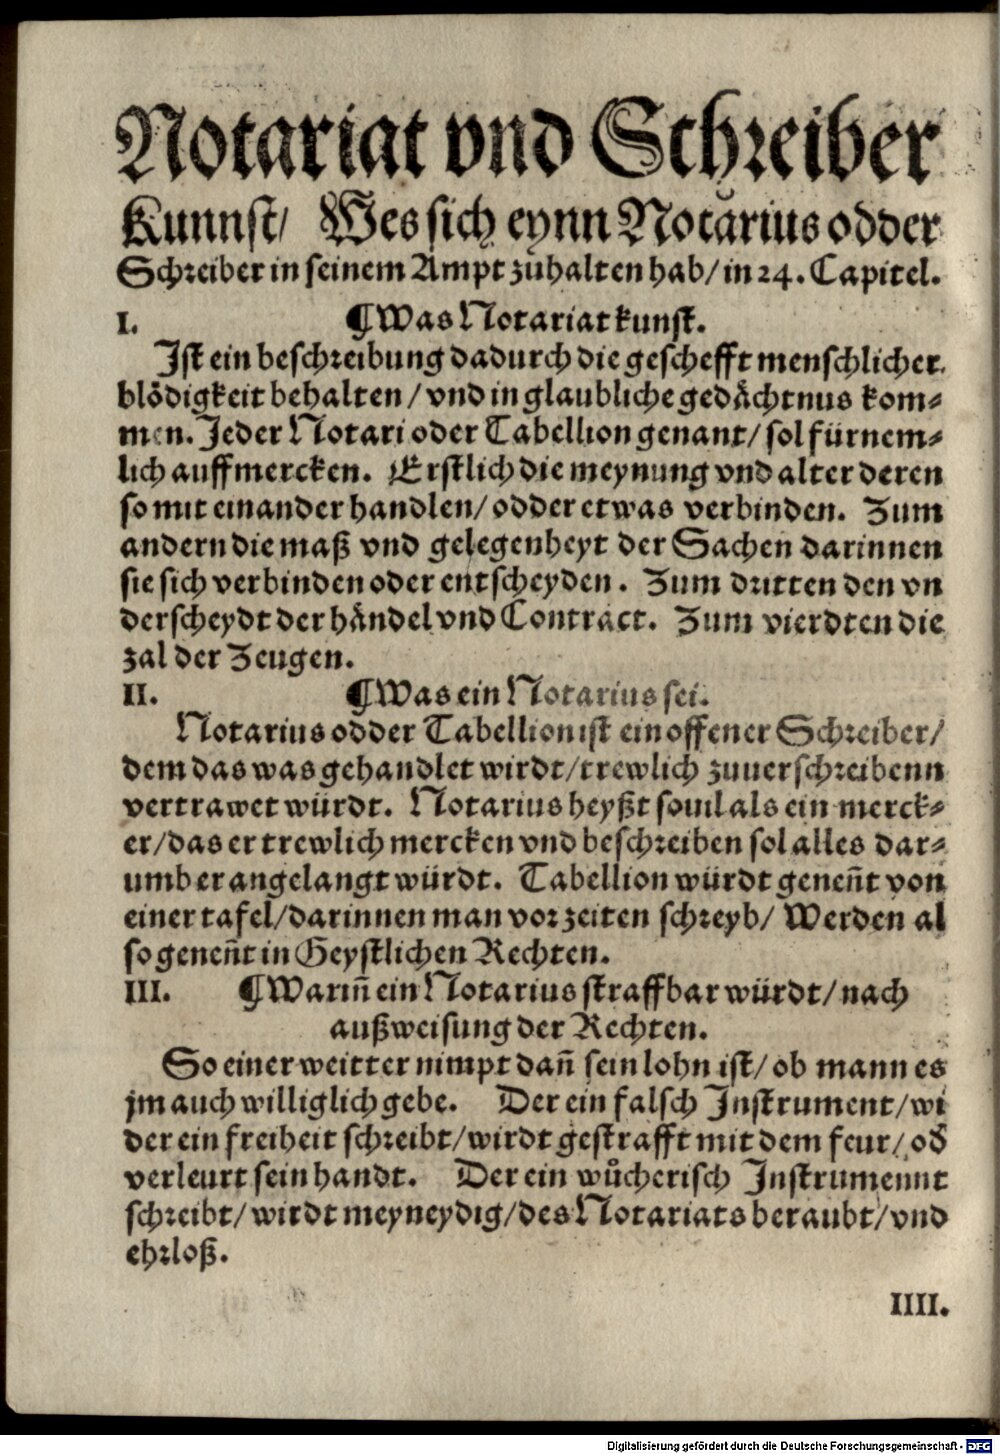 Notariat vnd Schreiber
Kunnst/ Wes sich eynn Notarius odder
Schreiber in seinem Ampt zůhalten hab/ in 24. Capitel.
I. ¶Was Notariat kunst.
Ist ein beschreibung dadurch die geschefft menschlicher
blödigkeit behalten/ vnd in glaubliche gedåchtnus kom⸗
men. Jeder Notari oder Tabellion genant/ sol fürnem⸗
lich auffmercken. Erstlich die meynung vnd alter deren
so mit einander handlen/ odder etwas verbinden. Zum
andern die maß vnd gelegenheyt der Sachen darinnen
sie sich verbinden oder entscheyden. Zum dritten den vn
derscheydt der håndel vnd Contract. Zum vierdten die
zal der Zeugen.
II. ¶Was ein Notarius sei.
Notarius odder Tabellion ist ein offener Schreiber/
dem das was gehandlet wirdt/ trewlich zuuerschreibenn
vertrawet würdt. Notarius heyßt souil als ein merck⸗
er/ das er trewlich mercken vnd beschreiben sol alles dar⸗
umb er angelangt würdt. Tabellion würdt genen̄t von
einer tafel/ darinnen man vor zeiten schreyb/ Werden al
so genen̄t in Geystlichen Rechten.
III. ¶Warin̄ ein Notarius straffbar würdt/ nach
außweisung der Rechten.
So einer weitter nimpt dan̄ sein lohn ist/ ob mann es
jm auch williglich gebe. Der ein falsch Instrument/ wi
der ein freiheit schreibt/ wirdt gestrafft mit dem feur/ od̄
verleurt sein handt. Der ein wůcherisch Instrumennt
schreibt/ wirdt meyneydig/ des Notariats beraubt/ vnd
ehrloß.
IIII.
Digitalisierung gefördert durch die Deutsche Forschungsgemeinschaft - DFG